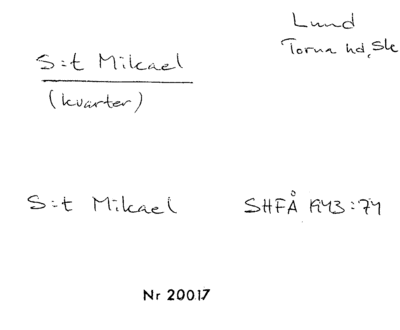 Lund
Torna hd, Sk
S:t Mikael
(kvarter)
S:t Mikael SHFÅ 1943:74
Nr 20017